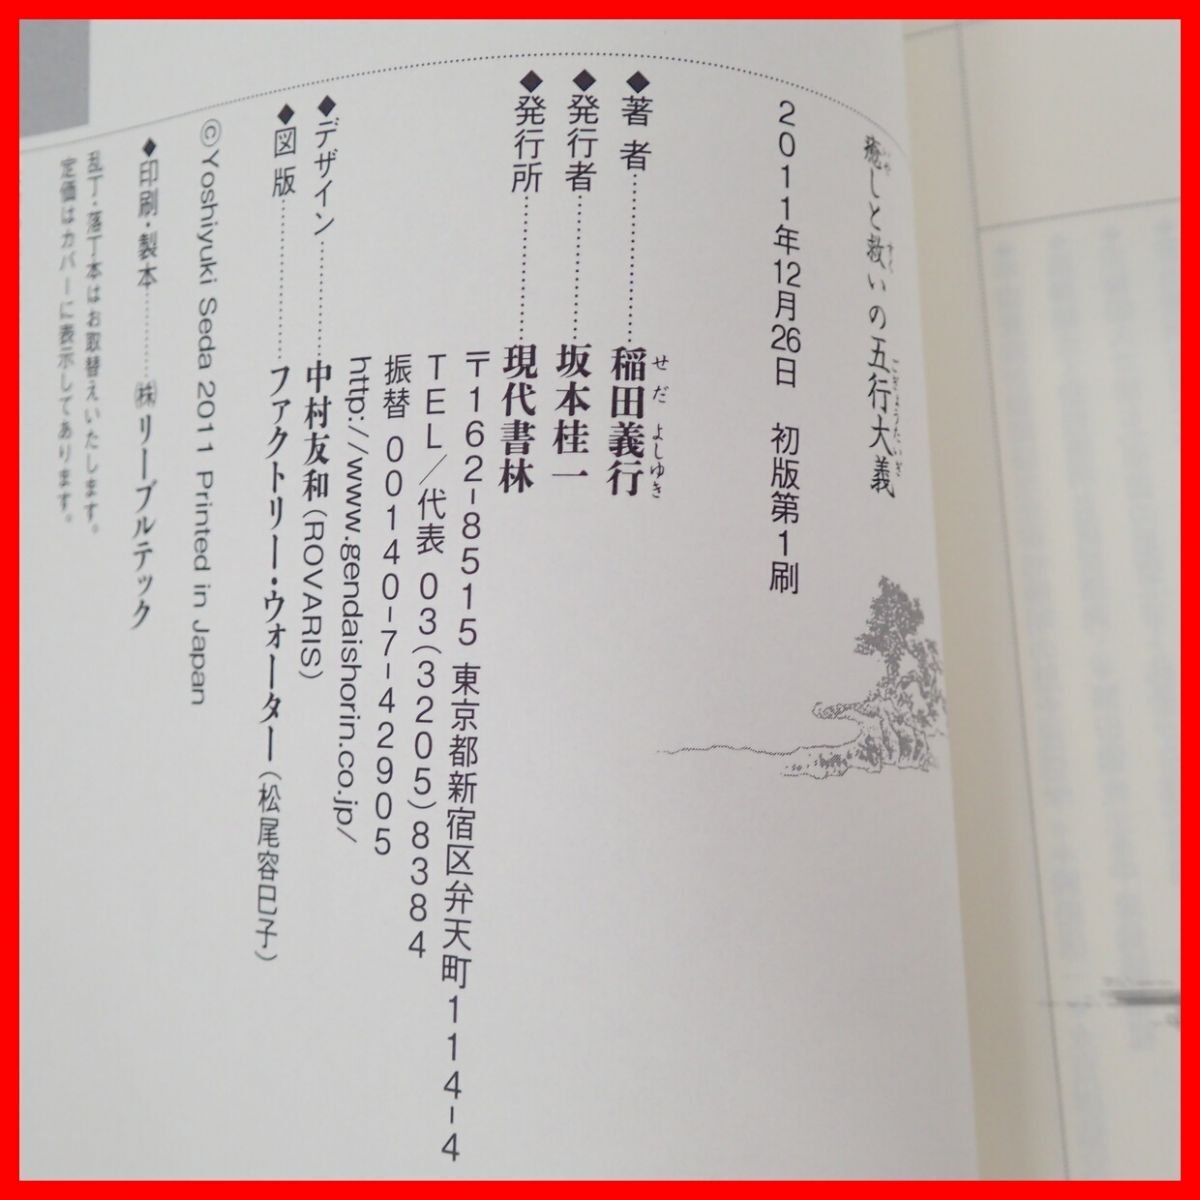 癒しと救いの五行大義
いや すく ごぎょうたいぎ
2011年12月26日 初版第1刷
◆著者…………稲田義行
せだ よしゆき
◆発行者…………坂本桂一
◆発行所…………現代書林
〒162-8515 東京都新宿区弁天町114-4
TEL/代表 03(3205)8384
振替 00140-7-42905
http://www.gendaishorin.co.jp/
◆デザイン…………中村友和(ROVARIS)
◆図版…………ファクトリー・ウォーター(松尾容巳子)
©Yoshiyuki Seda 2011 Printed in Japan
◆印刷・製本…………㈱リーブルテック
乱丁・落丁本はお取替えいたします。
定価はカバーに表示してあります。